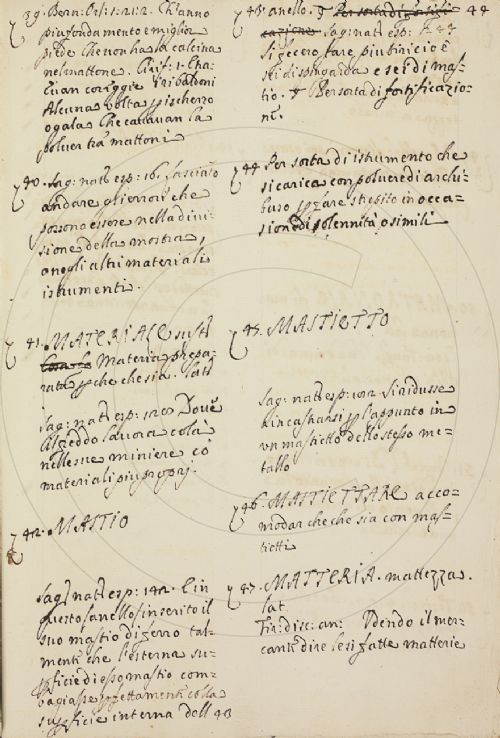 39. Bern: Orl: 1. 21. 2. Ch'anno
più fondamento e miglior
piede Che non ha la calcina
nel mattone.
Alcuna volta p ischerzo
o gala Che cattavan la
polver tra mattoni
40. Sag: nat: esp: 16. lasciato
andare gli errori che
possono essere nella divi=
sione della mostra,
o negli altri materiali
istrumenti.
41. MATERIALE sust:
Materia prepa=
rata p che che sia. lat:
Sag: nat: esp: Dove
il freddo lavora colà
nelle sue miniere cō
materiali più proprj.
42. MASTIO
Sag: nat: esp: 142. E in
questo fu inserito il
suo mastio di ferro tal=
mente che l'esterna su=
pficie di esso mastio com=
bagiasse pfettamente colla
supficie interna dell 43
43. anello. 44
Sag: nat: esp:
si fecero fare più tiri cō è
sei di spingarda e sei di mas=
tio. Per sorta di fortificazio=
ne.
44 Per sorta di istrumento che
si carica con polvere di archi=
buso p fare strepito in occa=
sione di solennità o simili
45. MASTIETTO
Sag: nat: esp: si ridusse
a incastrarsi p l'appunto in
un mastietto dello stesso me=
tallo
46. MASTIETTARE acco=
modar che che sia con mas=
tietti
47. MATTERIA. mattezza.
lat
Fir: disc: an: Udendo il mer=
cante dire le sì fatte matterie